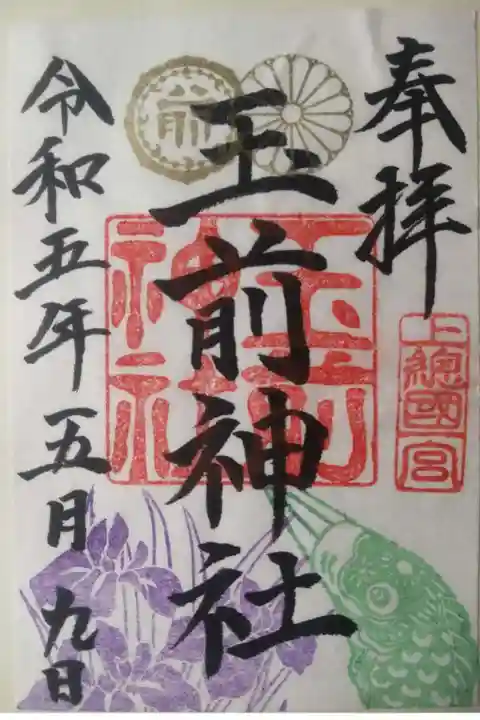 奉拝
上總國一宮
前
玉前神社
玉前神社
令和五年五月九日